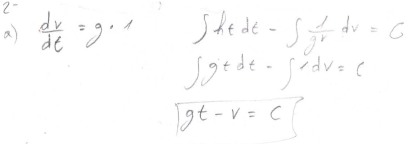 2-
a) dv/dt = g · 1
∫ht dt - ∫ 1/gv dv = C
∫gt dt - ∫ 1 dv = C
gt - v = C